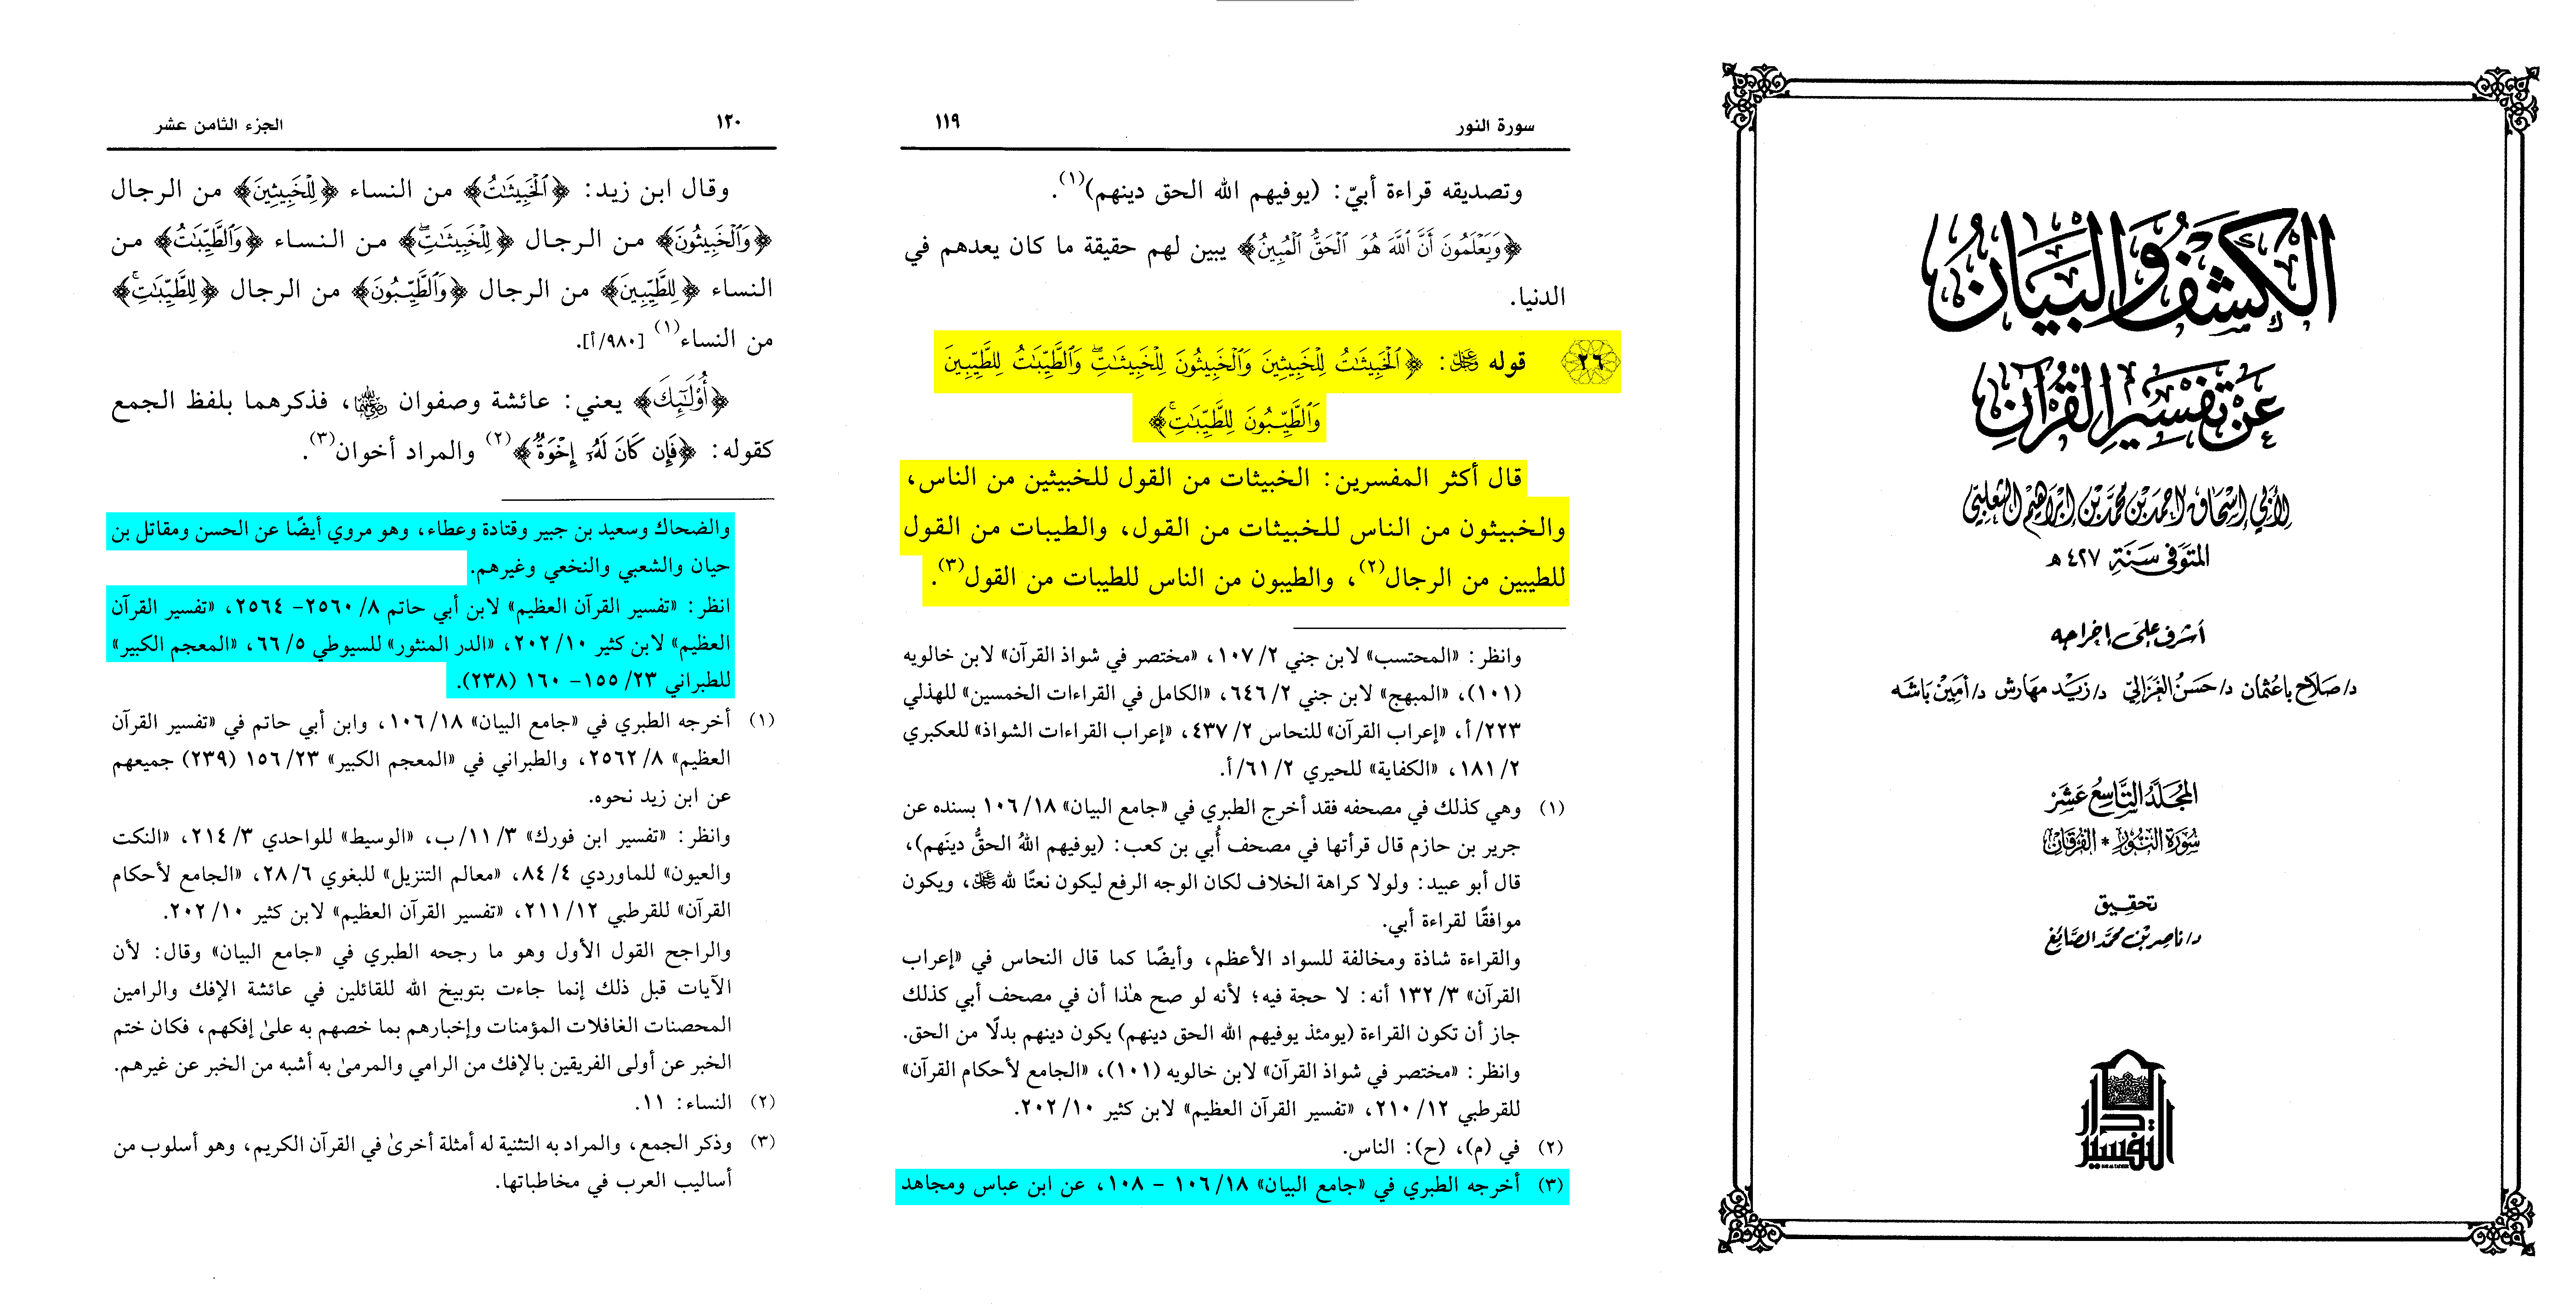 الكشف والبيان
عن تفسير القرآن
لأبي إسحاق أحمد بن محمد بن إبراهيم الثعلبي
المتوفى سنة ٤٢٧ هـ
أشرف على إخراجه
د/ صلاح باعثمان د/ حسن الغزالي د/ زيد مهارش د/ أمين باشه
المجلد التاسع عشر
سورة النور * الفرقان
تحقيق
د/ ناصر بن محمد الصائغ
دار التفسير
سورة النور
١١٩
وتصديقه قراءة أبيّ: (يوفيهم الله الحق دينهم)(١).
﴿وَيَعْلَمُونَ أَنَّ ٱللَّهَ هُوَ ٱلْحَقُّ ٱلْمُبِينُ﴾ يبين لهم حقيقة ما كان يعدهم في
الدنيا.
٢٦ قوله ﷻ: ﴿ٱلْخَبِيثَـٰتُ لِلْخَبِيثِينَ وَٱلْخَبِيثُونَ لِلْخَبِيثَـٰتِۖ وَٱلطَّيِّبَـٰتُ لِلطَّيِّبِينَ
وَٱلطَّيِّبُونَ لِلطَّيِّبَـٰتِۚ﴾
قال أكثر المفسرين: الخبيثات من القول للخبيثين من الناس،
والخبيثون من الناس للخبيثات من القول، والطيبات من القول
للطيبين من الرجال(٢)، والطيبون من الناس للطيبات من القول(٣).
وانظر: «المحتسب» لابن جني ٢/ ١٠٧، «مختصر في شواذ القرآن» لابن خالويه
(١٠١)، «المبهج» لابن جني ٢/ ٦٤٦، «الكامل في القراءات الخمسين» للهذلي
٢٢٣/أ، «إعراب القرآن» للنحاس ٢/ ٤٣٧، «إعراب القراءات الشواذ» للعكبري
٢/ ١٨١، «الكفاية» للحيري ٢/ ٦١/أ.
(١) وهي كذلك في مصحفه فقد أخرج الطبري في «جامع البيان» ١٨/ ١٠٦ بسنده عن
جرير بن حازم قال قرأتها في مصحف أُبي بن كعب: (يوفيهم اللهُ الحقُّ دينَهم)،
قال أبو عبيد: ولولا كراهة الخلاف لكان الوجه الرفع ليكون نعتًا لله ﷻ، ويكون
موافقًا لقراءة أبي.
والقراءة شاذة ومخالفة للسواد الأعظم، وأيضًا كما قال النحاس في «إعراب
القرآن» ٣/ ١٣٢ أنه: لا حجة فيه؛ لأنه لو صح هٰذا أن في مصحف أبي كذلك
جاز أن تكون القراءة (يومئذ يوفيهم الله الحق دينهم) يكون دينهم بدلًا من الحق.
وانظر: «مختصر في شواذ القرآن» لابن خالويه (١٠١)، «الجامع لأحكام القرآن»
للقرطبي ١٢/ ٢١٠، «تفسير القرآن العظيم» لابن كثير ١٠/ ٢٠٢.
(٢) في (م)، (ح): الناس.
(٣) أخرجه الطبري في «جامع البيان» ١٨/ ١٠٦ - ١٠٨، عن ابن عباس ومجاهد
١٢٠
الجزء الثامن عشر
وقال ابن زيد: ﴿ٱلْخَبِيثَـٰتُ﴾ من النساء ﴿لِلْخَبِيثِينَ﴾ من الرجال
﴿وَٱلْخَبِيثُونَ﴾ من الرجال ﴿لِلْخَبِيثَـٰتِۖ﴾ من النساء ﴿وَٱلطَّيِّبَـٰتُ﴾ من
النساء ﴿لِلطَّيِّبِينَ﴾ من الرجال ﴿وَٱلطَّيِّبُونَ﴾ من الرجال ﴿لِلطَّيِّبَـٰتِۚ﴾
من النساء(١) [٩٨٠/أ].
﴿أُوْلَـٰٓئِكَ﴾ يعني: عائشة وصفوان رضي الله عنهما، فذكرهما بلفظ الجمع
كقوله: ﴿فَإِن كَانَ لَهُۥٓ إِخْوَةٌ﴾(٢) والمراد أخوان(٣).
والضحاك وسعيد بن جبير وقتادة وعطاء، وهو مروي أيضًا عن الحسن ومقاتل بن
حيان والشعبي والنخعي وغيرهم.
انظر: «تفسير القرآن العظيم» لابن أبي حاتم ٨/ ٢٥٦٠- ٢٥٦٤، «تفسير القرآن
العظيم» لابن كثير ١٠/ ٢٠٢، «الدر المنثور» للسيوطي ٥/ ٦٦، «المعجم الكبير»
للطبراني ٢٣/ ١٥٥- ١٦٠ (٢٣٨).
(١) أخرجه الطبري في «جامع البيان» ١٨/ ١٠٦، وابن أبي حاتم في «تفسير القرآن
العظيم» ٨/ ٢٥٦٢، والطبراني في «المعجم الكبير» ٢٣/ ١٥٦ (٢٣٩) جميعهم
عن ابن زيد نحوه.
وانظر: «تفسير ابن فورك» ٣/ ١١/ب، «الوسيط» للواحدي ٣/ ٢١٤، «النكت
والعيون» للماوردي ٤/ ٨٤، «معالم التنزيل» للبغوي ٦/ ٢٨، «الجامع لأحكام
القرآن» للقرطبي ١٢/ ٢١١، «تفسير القرآن العظيم» لابن كثير ١٠/ ٢٠٢.
والراجح القول الأول وهو ما رجحه الطبري في «جامع البيان» وقال: لأن
الآيات قبل ذلك إنما جاءت بتوبيخ الله للقائلين في عائشة الإفك والرامين
المحصنات الغافلات المؤمنات وإخبارهم بما خصهم به علىٰ إفكهم، فكان ختم
الخبر عن أولى الفريقين بالإفك من الرامي والمرمىٰ به أشبه من الخبر عن غيرهم.
(٢) النساء: ١١.
(٣) وذكر الجمع، والمراد به التثنية له أمثلة أخرىٰ في القرآن الكريم، وهو أسلوب من
أساليب العرب في مخاطباتها.